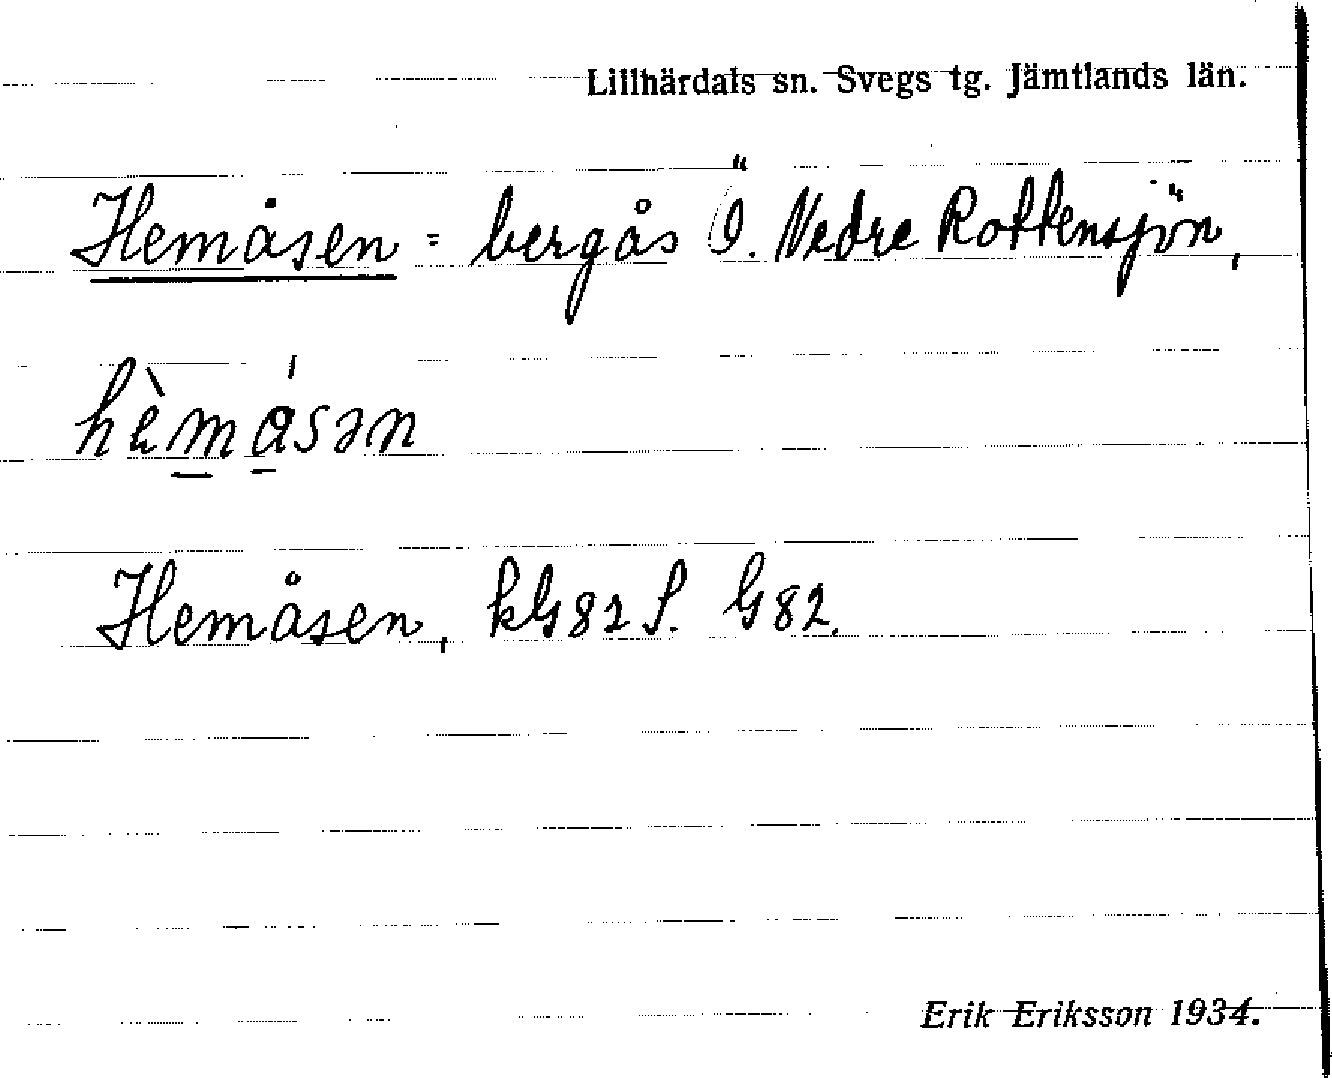 Lillhärdals sn. Svegs tg. Jämtlands län.
Hemåsen = bergås Ö. Nedre Rottensjön,
hèmåsən
Hemåsen, kG82 S. G82.
Erik Eriksson 1934.